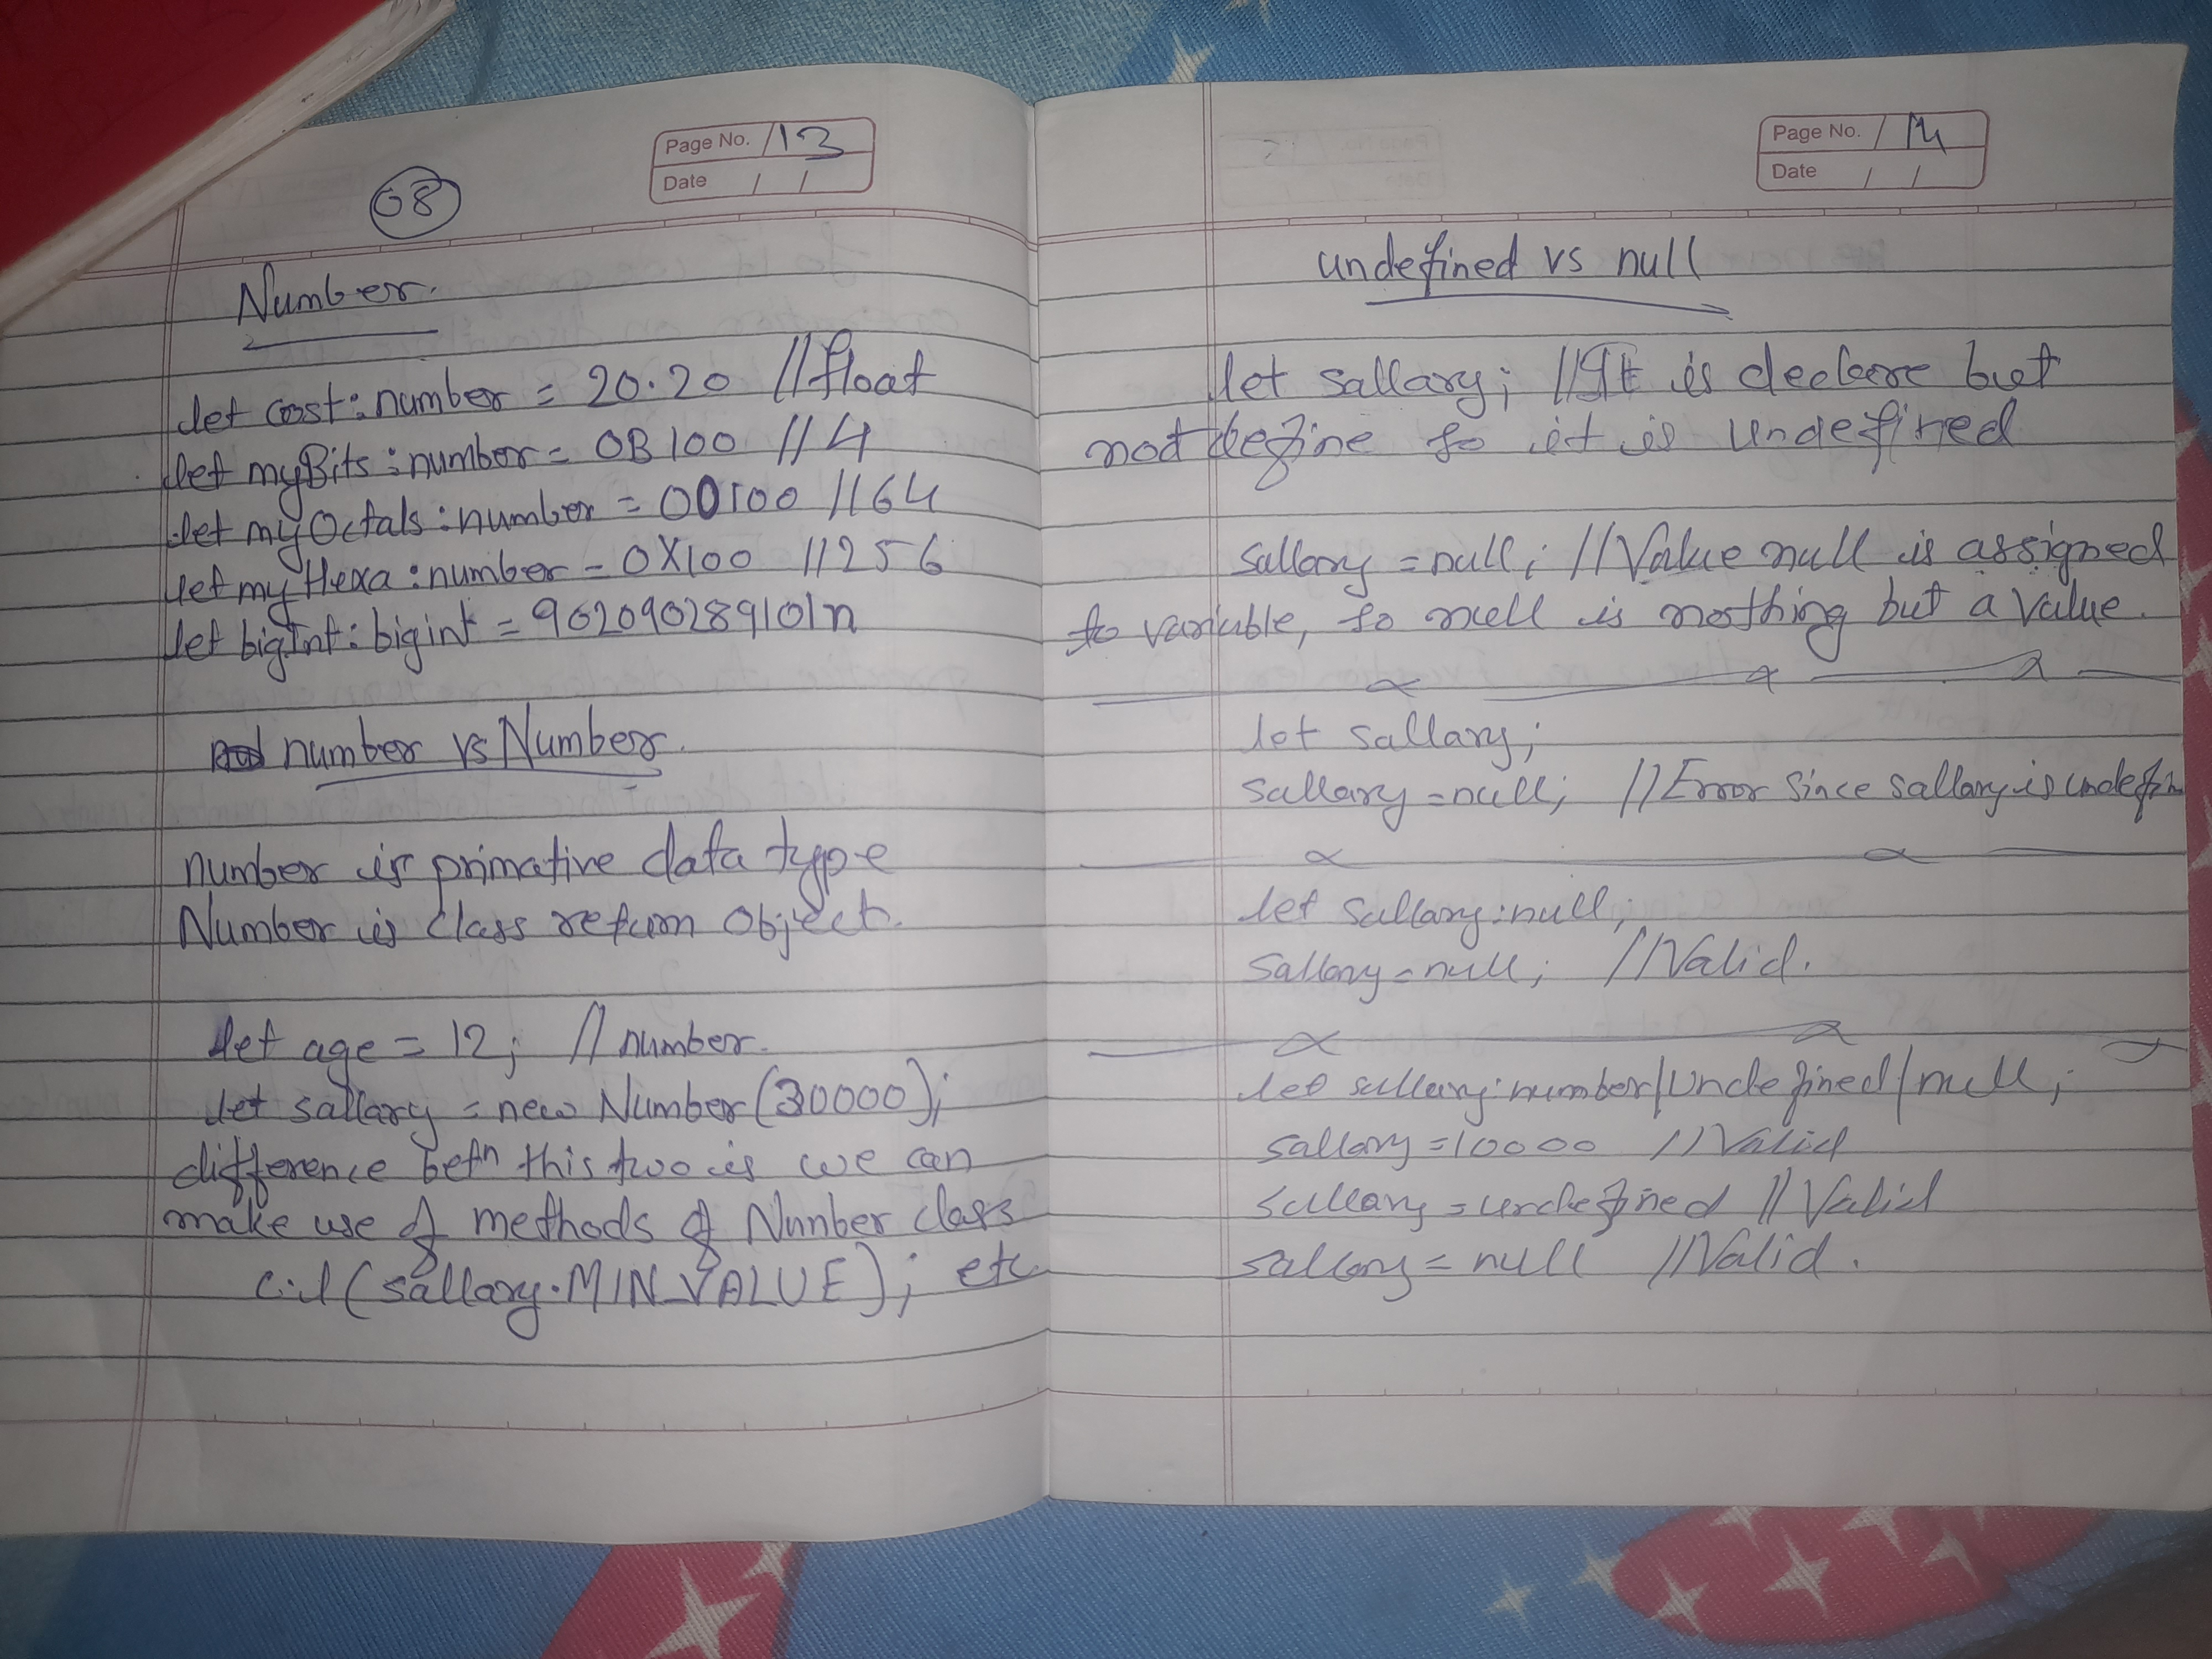 Page No. /13
Date / /
08
Number.
let cost:number = 20.20 //float
let myBits:number = 0B100 //4
let myOctals:number = 0O100 //64
let myHexa:number = 0X100 //256
let bigInt:bigint = 962090289101n
number vs Number.
number is primative data type
Number is class return object.
let age = 12; //number.
let sallary = new Number(30000);
difference betn this two is we can
make use of methods of Number class
c.l(sallary.MIN_VALUE); etc
Page No. / 14
Date / /
undefined vs null
let sallary; //It is declare but
not define so it is undefined
sallary = null; //Value null is assigned
to variable, so null is nothing but a value.
let sallary;
sallary = null; //Error since sallary is undefin
let sallary:null;
sallary = null; //Valid.
let sallary:number|undefined|null;
sallary = 10000 //Valid
sallary = undefined //Valid
sallary = null //Valid.